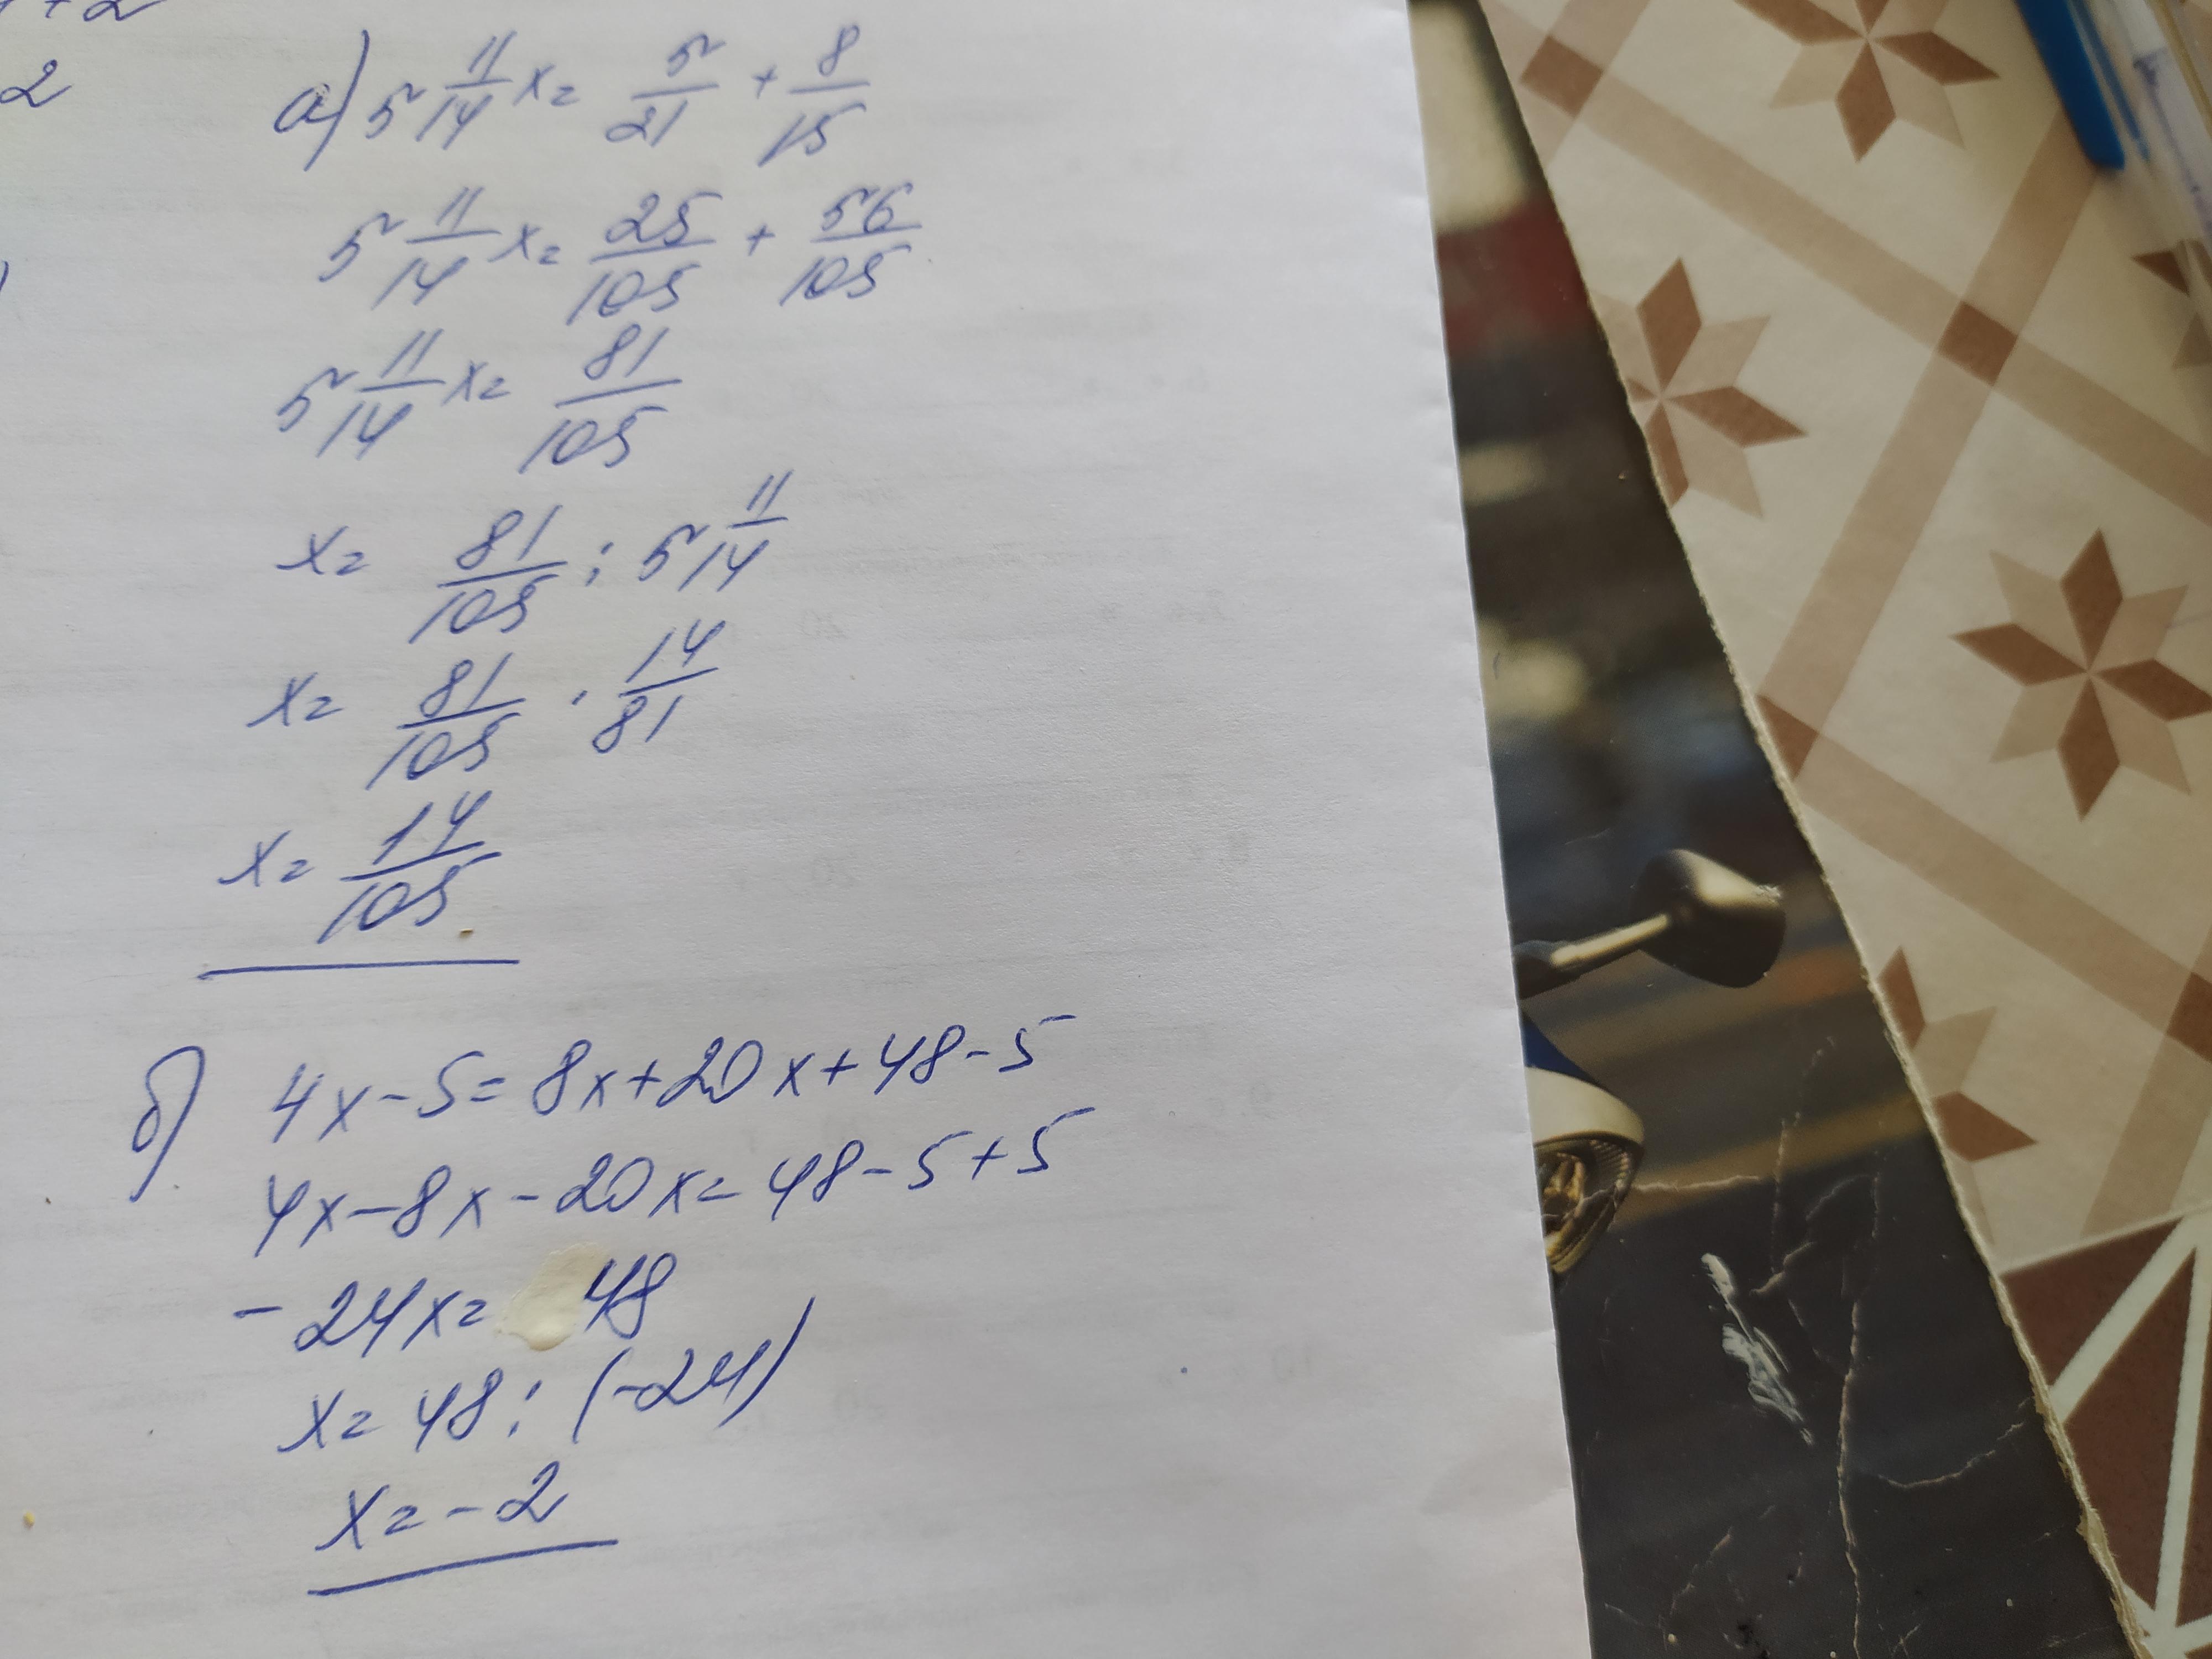 2
а) 5 11/14 x = 5/21 + 8/15
5 11/14 x = 25/105 + 56/105
5 11/14 x = 81/105
x = 81/105 : 5 11/14
x = 81/105 · 14/81
x = 14/105
б) 4x-5=8x+20x+48-5
4x-8x-20x=48-5+5
-24x= 48
x=48:(-24)
x=-2